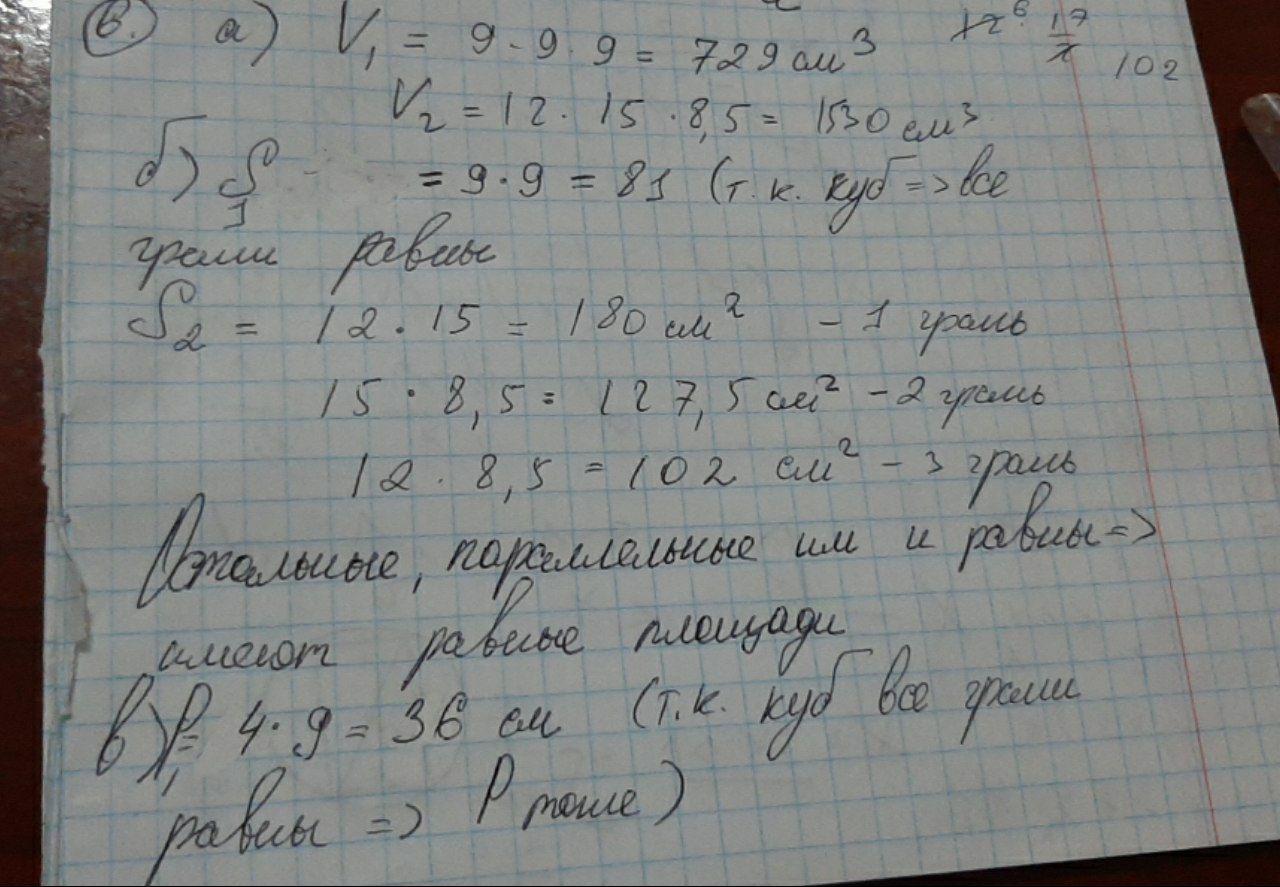 6. а) V₁ = 9 · 9 · 9 = 729 см³
12⁶ · 17/2 102
V₂ = 12 · 15 · 8,5 = 1530 см³
б) S₁ = 9 · 9 = 81 (т.к. куб => все
грани равны
S₂ = 12 · 15 = 180 см² - 1 грань
15 · 8,5 = 127,5 см² - 2 грань
12 · 8,5 = 102 см² - 3 грань
Остальные, параллельные им и равны =>
имеют равные площади
в) P₁ = 4 · 9 = 36 см (т.к. куб все грани
равны => P тоже)